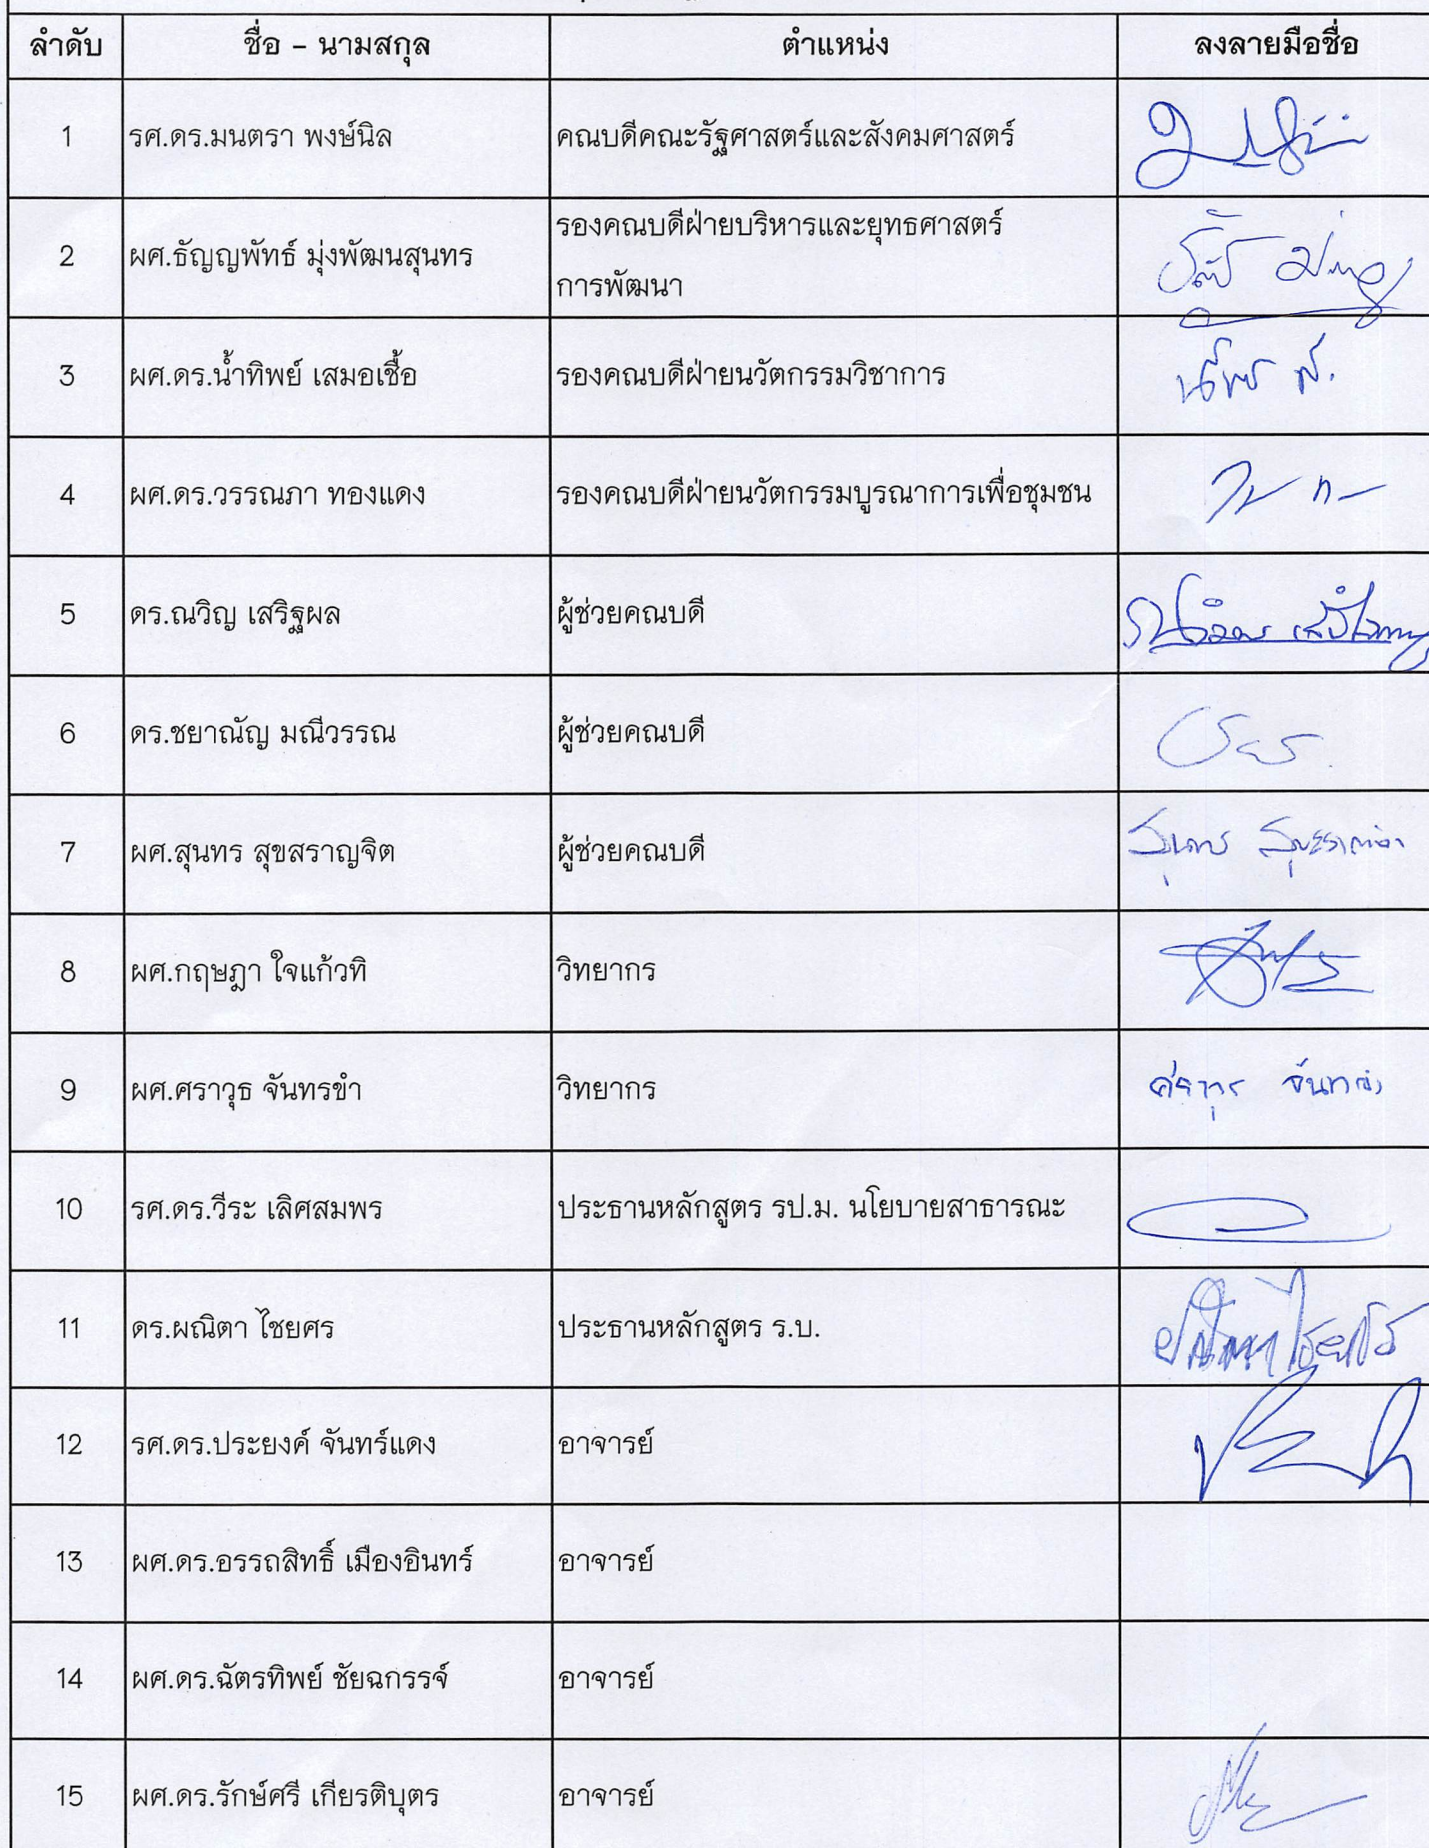 ลำดับ ชื่อ - นามสกุล ตำแหน่ง ลงลายมือชื่อ
1 รศ.ดร.มนตรา พงษ์นิล คณบดีคณะรัฐศาสตร์และสังคมศาสตร์
2 ผศ.ธัญญพัทธ์ มุ่งพัฒนสุนทร รองคณบดีฝ่ายบริหารและยุทธศาสตร์
การพัฒนา
3 ผศ.ดร.น้ำทิพย์ เสมอเชื้อ รองคณบดีฝ่ายนวัตกรรมวิชาการ
4 ผศ.ดร.วรรณภา ทองแดง รองคณบดีฝ่ายนวัตกรรมบูรณาการเพื่อชุมชน
5 ดร.ณวิญ เสริฐผล ผู้ช่วยคณบดี
6 ดร.ชยาณัญ มณีวรรณ ผู้ช่วยคณบดี
7 ผศ.สุนทร สุขสราญจิต ผู้ช่วยคณบดี
8 ผศ.กฤษฎา ใจแก้วทิ วิทยากร
9 ผศ.ศราวุธ จันทรขำ วิทยากร ศราวุธ จันทรขำ
10 รศ.ดร.วีระ เลิศสมพร ประธานหลักสูตร รป.ม. นโยบายสาธารณะ
11 ดร.ผณิตา ไชยศร ประธานหลักสูตร ร.บ.
12 รศ.ดร.ประยงค์ จันทร์แดง อาจารย์
13 ผศ.ดร.อรรถสิทธิ์ เมืองอินทร์ อาจารย์
14 ผศ.ดร.ฉัตรทิพย์ ชัยฉกรรจ์ อาจารย์
15 ผศ.ดร.รักษ์ศรี เกียรติบุตร อาจารย์